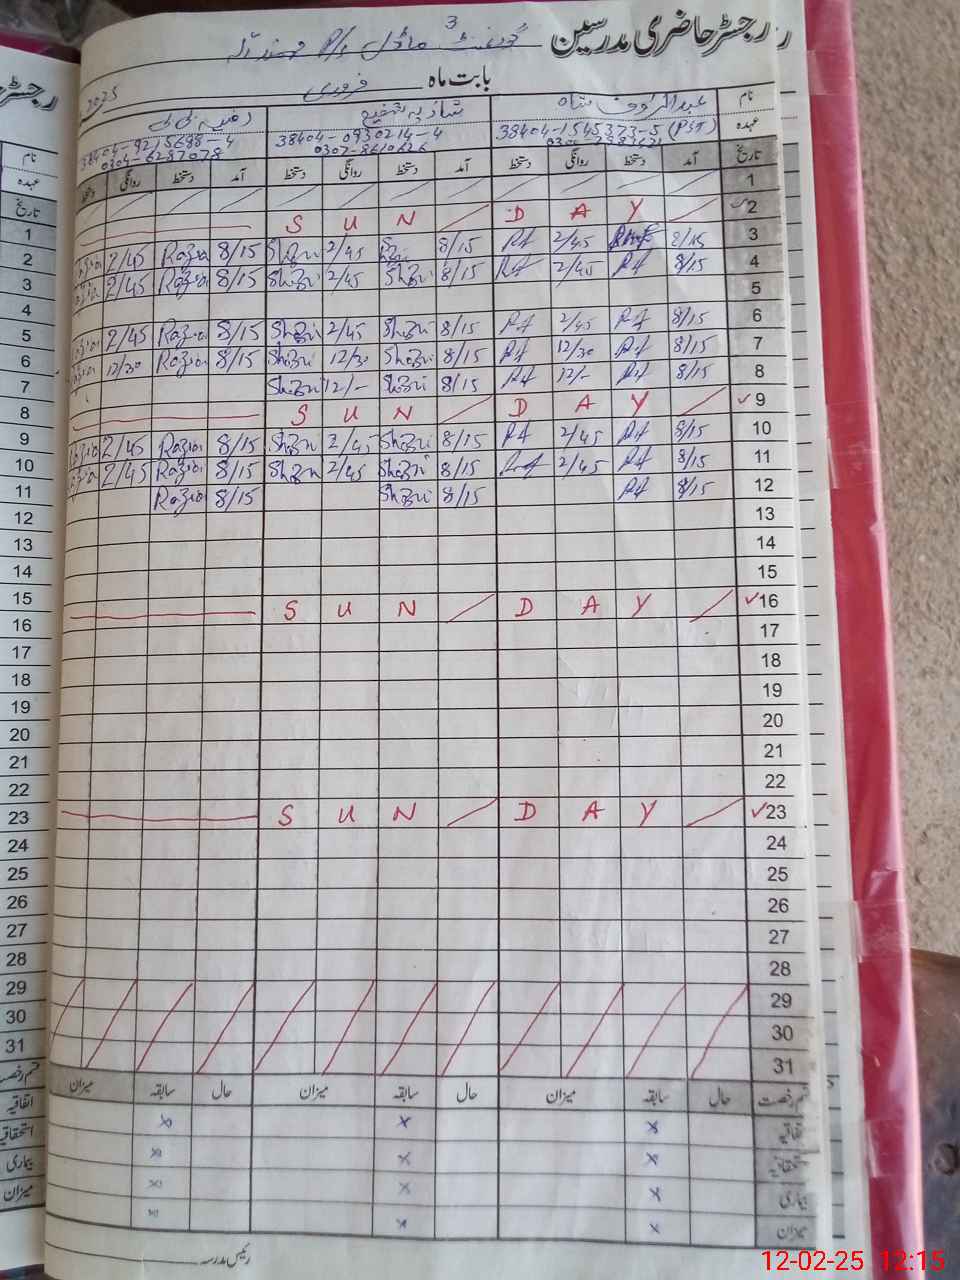 رجسٹر حاضری مدرسین گورنمنٹ ماڈل P/S
بابت ماہ فروری 2025
نام عبدالرؤف شاہ شازیہ شفیع رضیہ بی بی
عہدہ 38404-1545373-5 (PST) 38404-0930214-4 38404-9215698-4
0307-8610626 0304-6287078
تاریخ آمد دستخط روانگی دستخط آمد دستخط روانگی دستخط آمد دستخط روانگی دستخط
1
2 S U N D A Y
3 8/15 2/45 8/15 2/45 8/15 Razia 2/45
4 8/15 2/45 8/15 Shazi 2/45 Shazi 8/15 Razia 2/45
5
6 8/15 2/45 8/15 Shazi 2/45 Shazi 8/15 Razia 2/45
7 8/15 12/30 8/15 Shazi 12/30 Shazi 8/15 Razia 12/30
8 8/15 12/- 8/15 Shazi 12/- Shazi
9 S U N D A Y
10 8/15 2/45 8/15 Shazi 2/45 Shazi 8/15 Razia 2/45
11 8/15 2/45 8/15 Shazi 2/45 Shazi 8/15 Razia 2/45
12 8/15 8/15 Shazi 8/15 Razia
13
14
15
16 S U N D A Y
17
18
19
20
21
22
23 S U N D A Y
24
25
26
27
28
29
30
31
قسم رخصت حال سابقہ میزان حال سابقہ میزان حال سابقہ میزان
اتفاقیہ × × ×
استحقاقیہ × × ×
بیماری × × ×
میزان × × ×
رئیس مدرسہ
رجسٹر
نام
عہدہ
تاریخ
1
2
3
4
5
6
7
8
9
10
11
12
13
14
15
16
17
18
19
20
21
22
23
24
25
26
27
28
29
30
31
قسم رخصت
اتفاقیہ
استحقاقیہ
بیماری
میزان
12-02-25 12:15